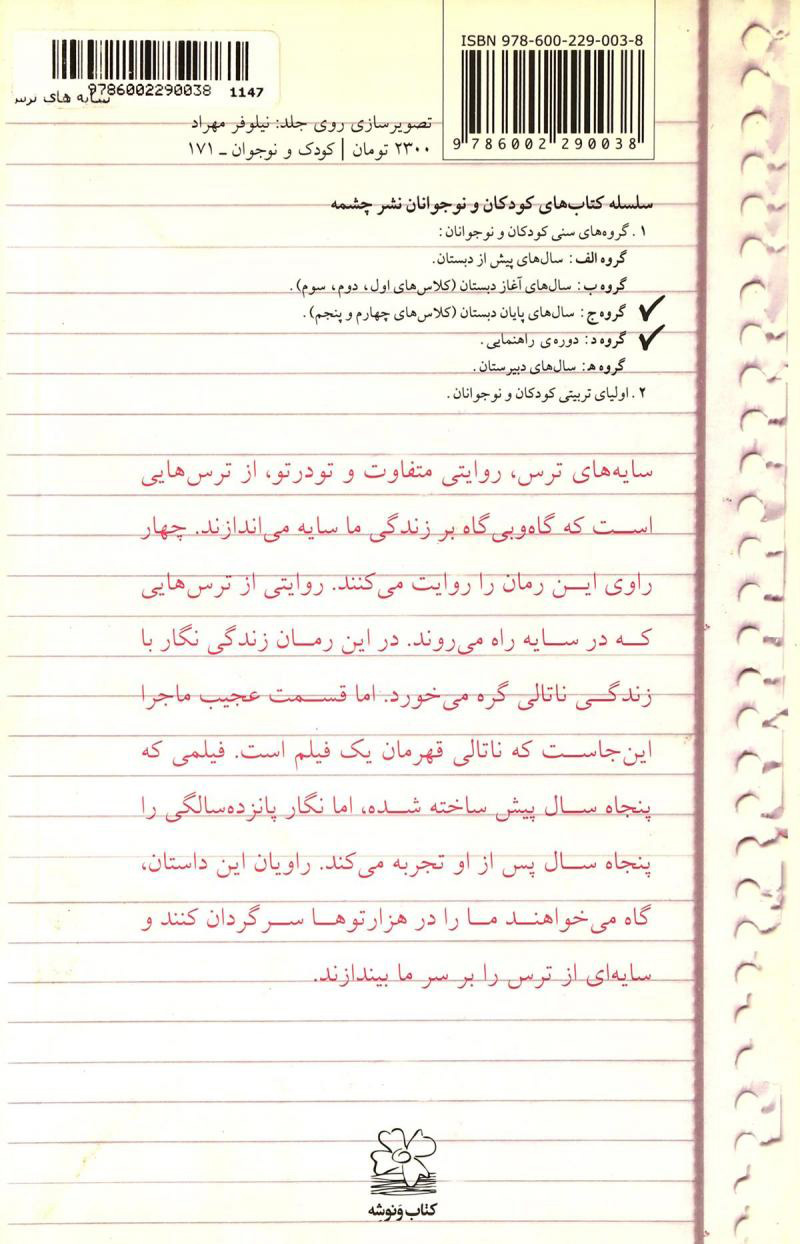 ISBN 978-600-229-003-8
9786002290038 1147
سایه های ترس
9 786002 290038
تصویرسازی روی جلد: نیلوفر مهراد
۲۳۰۰ تومان | کودک و نوجوان ـ ۱۷۱
سلسله کتاب‌های کودکان و نوجوانان نشر چشمه
۱. گروه‌های سنی کودکان و نوجوانان:
گروه الف: سال‌های پیش از دبستان.
گروه ب: سال‌های آغاز دبستان (کلاس‌های اول، دوم، سوم).
گروه ج: سال‌های پایان دبستان (کلاس‌های چهارم و پنجم).
گروه د: دوره‌ی راهنمایی.
گروه ه‍: سال‌های دبیرستان.
۲. اولیای تربیتی کودکان و نوجوانان.
سایه‌های ترس، روایتی متفاوت و تودرتو، از ترس‌هایی
است که گاه‌وبی‌گاه بر زندگی ما سایه می‌اندازند. چهار
راوی ایـن رمان را روایت می‌کنند. روایتی از ترس‌هایی
کـه در سـایه راه می‌روند. در این رمـان زندگی نگار با
زندگـی ناتالی گره می‌خورد. اما قسـمت عجیب ماجرا
این‌جاسـت که ناتالی قهرمان یک فیلم است. فیلمی که
پنجاه سـال پیش ساخته شـده، اما نگار پانزده‌سالگی را
پنجاه سـال پس از او تجربه می‌کند. راویان این داستان،
گاه می‌خواهنـد مـا را در هزارتوهـا سـرگردان کنند و
سایه‌ای از ترس را بر سر ما بیندازند.
کتاب وَنوشه